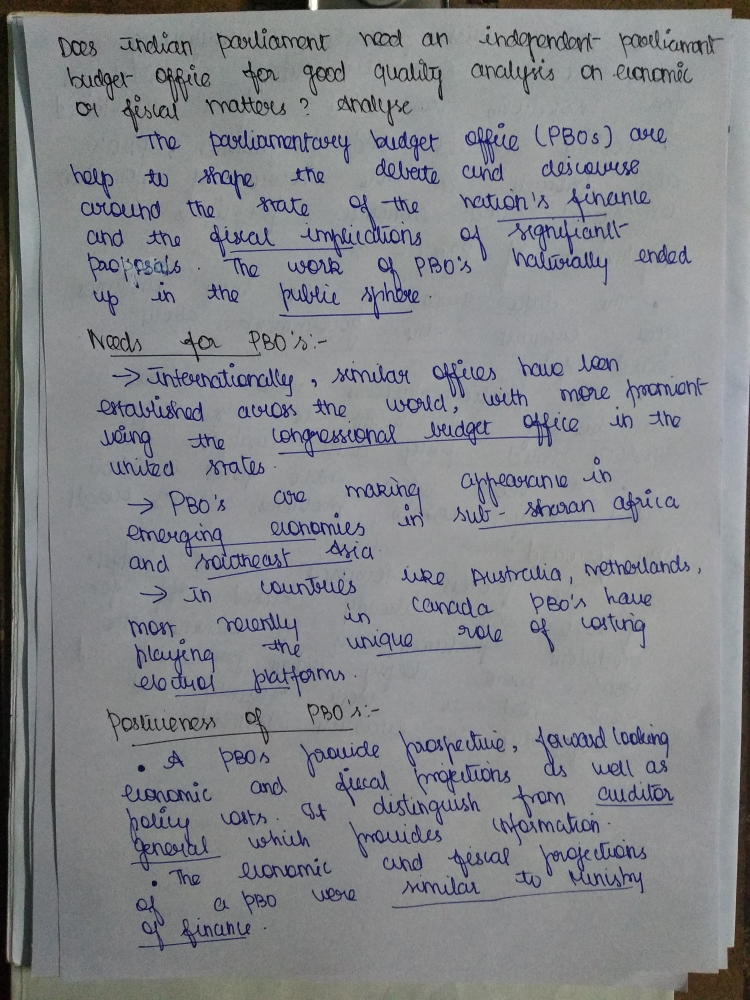 Does Indian parliament need an independent parliament
budget office for good quality analysis on economic
or fiscal matters? Analyse
The parliamentary budget office (PBOs) are
help to shape the debate and descourse
around the state of the nation's finance
and the fiscal implications of significant
proposals. The work of PBO's naturally ended
up in the public sphere.
Needs for PBO's:-
→ Internationally, similar offices have been
established across the world, with more promient
being the congressional budget office in the
united states.
→ PBO's are making appearance in
emerging economies in sub-sharan africa
and southeast Asia.
→ In countries like Australia, Netherlands,
Canada PBO's have
most recently in
playing the unique role of costing
electual platforms.
Postiveness of PBO's:-
• A PBOs provide prospective, forward looking
economic and fiscal projections as well as
policy costs. It distinguish from auditor
general which provides information.
• The economic and fiscal projections
of a PBO were similar to Ministry
of finance.